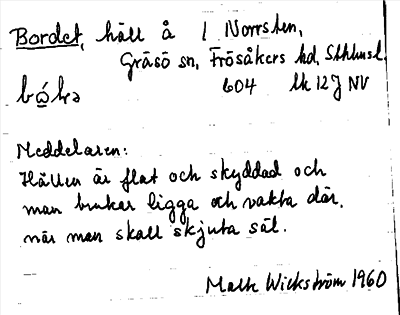 Bordet, häll å 1 Norrsten,
Gräsö sn, Frösåkers hd, Sthlmsl.
604 lk 12J NV
Meddelaren:
Hällen är flat och skyddad och
man brukar ligga och vakta där,
när man skall skjuta säl.
Mats Wickström 1960